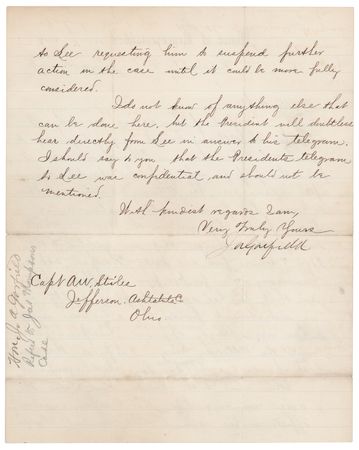 to Lee requesting him to suspend further
action in the case until it could be more fully
considered.
I do not know of anything else that
can be done here, but the President will doubtless
hear directly from Lee in answer to his telegram.
I should say to you that the Presidents telegram
to Lee was confidential and should not be
mentioned.
With kindest regards I am,
Very Truly Yours
J A Garfield
Capt A W Stiles
Jefferson, Ashtabula Co
Ohio
Hon J. A. Garfield
Refers to Jas
Case